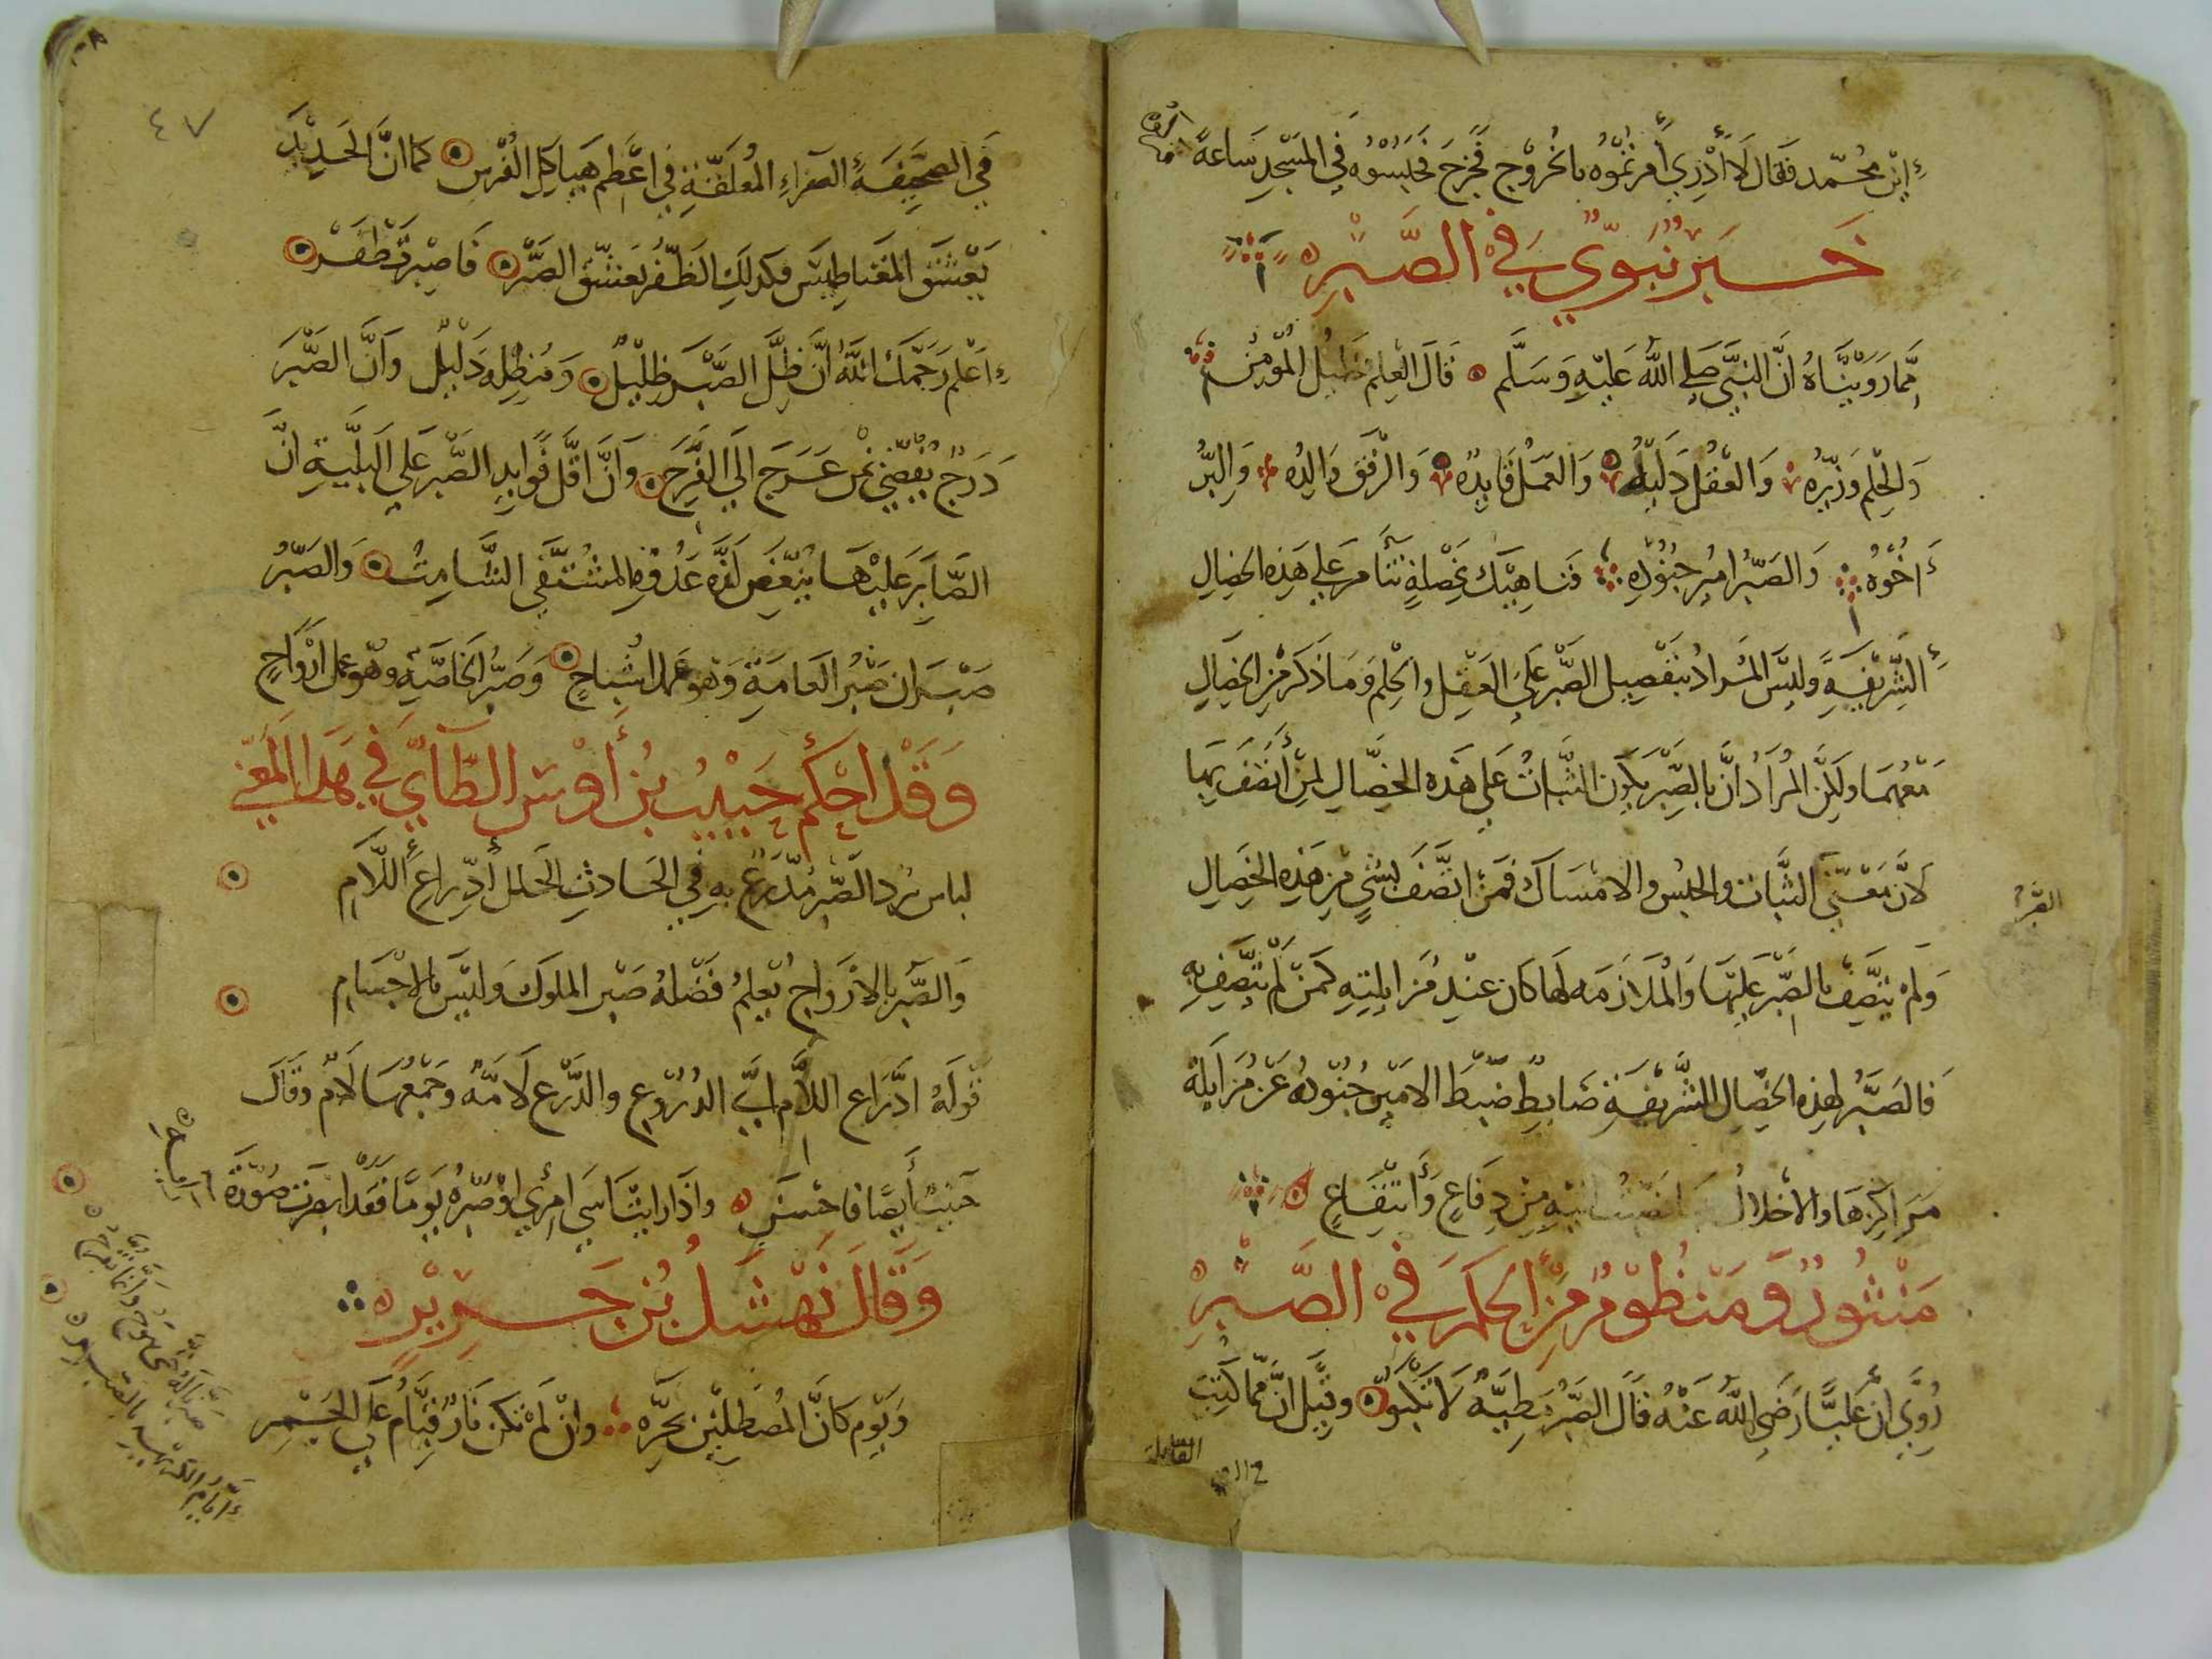 ابن محمد فقال لا أدري أمرتموه بالخروج فخرج فحبستوه في المسجد ساعة
خبر نبوي في الصبر
مما رويناه ان النبي صلى الله عليه وسلم قال العلم خليل المؤمن
والحلم وزيره والعقل دليله والعمل قايده والرفق والده والبر
أخوه والصبر امير جنوده فناهيك بخصلة تتأمر على هذه الخصال
الشريفة وليس المراد بتفضيل الصبر على العقل والحلم وما ذكر من الخصال
معهما ولكن المراد ان بالصبر يكون الثبات على هذه الخصال لمن اتصف بها
لان معنى الثبات والحبس والامساك فمن اتصف بشي من هذه الخصال
ولم يتصف بالصبر عليها والملازمه لها كان عند مزايلته كمن لم يتصف به
الصبر
فالصبر لهذه الخصال الشريفة ضابط ضبط الامير جنوده عن مزايلة
مراكزها والاخلال من دفاع وانتفاع
منثور ومنظوم من الحكم في الصبر
روي ان عليا رضي الله عنه قال الصبر مطية لا تكبو وقيل ان مما كتب
٤٧
في الصحيفة الصفراء المعلقة في اعظم هياكل الفرس كما ان الحديد
يعشق المغناطيس فكذلك الظفر يعشق الصبر فاصبر تظفر
اعلم رحمك الله ان ظل الصبر ظليل ومنظله دليل وان الصبر
درج يفضي بمن عرج الى الفرج وان اقل فوايد الصبر على البلية ان
الصابر عليها ينغص لذه عدوه المشتفي الشامت والصبر
صبران صبر العامة وهو عمل اشباح وصبر الخاصة وهو عمل ارواح
وقد احكم حبيب بن أوس الطآي في هذا المعنى
لباس برد الصبر مدرع به في الحادث الجلل أدراع اللام
والصبر بالارواح يعلم فضله صبر الملوك وليس بالاجسام
قوله ادراع اللام اي الدروع والدرع لامه وجمعها لام وقال
حبيب أيضا فاحسن واذا رايت اسى امرئ او صبره يوما فقد ابصرت صورة
وقال نهشل بن حرير
ويوم كان المصطلين بحره وان لم تكن نار قيام على الجمر
صبرنا له حتى وانما تفرج
أيام الكريهة بالصبر